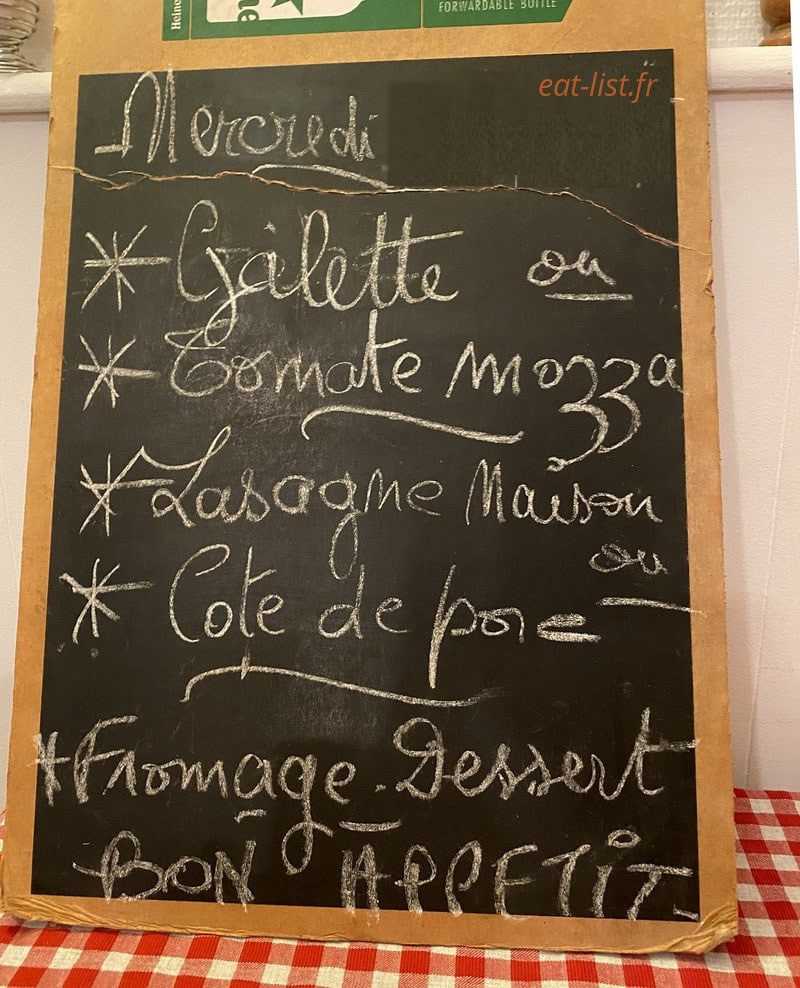 Heine
ne
FORWARDABLE BOTTLE
eat-list.fr
Mercredi
* Gâlette ou
* Tomate mozza
* Lasagne Maison
ou
* Cote de porc
* Fromage. Dessert
BON APPETIT